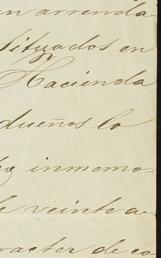 en arrenda-
situados en
Hacienda
dueños lo
inmemo-
de veinte a-
caracter de co